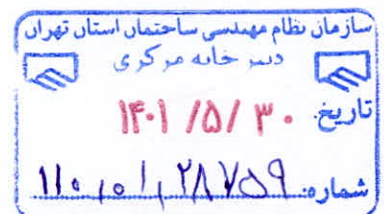 سازمان نظام مهندسی ساختمان استان تهران
دبیرخانه مرکزی
تاریخ: ۱۴۰۱ /۵/ ۳۰
شماره: ۱۱۰،۰۱،۲۸۷۵۹